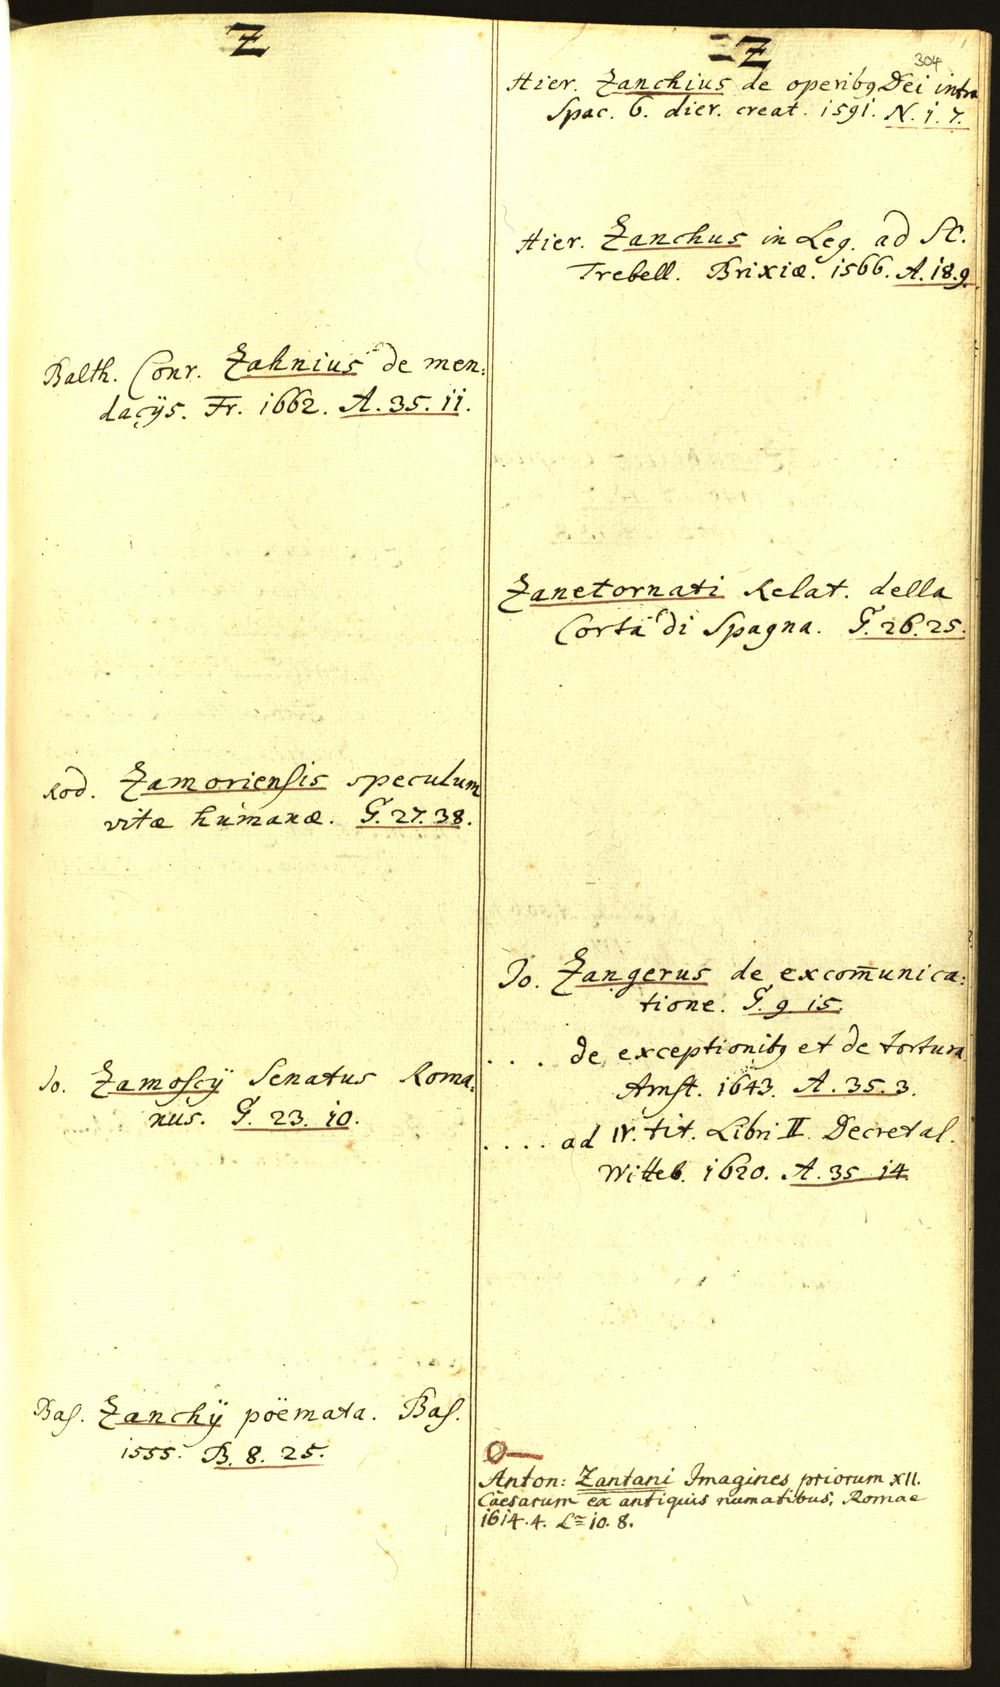 Z
Balth. Conr. Zahnius de men:
dacijs. Fr. 1662. A. 35. 11.
Rod. Zamoriensis speculum
vitæ humanæ. G. 27. 38.
Io. Zamoscÿ Senatus Roma:
nus. G. 23. 10.
Bas. Zanchÿ poëmata. Bas.
1555. B. 8. 25.
Z
304
Hier. Zanchius de operibꝫ Dei intra
Spac. 6. dier. creat. 1591. N. 1. 7.
Hier. Zanchus in Leg. ad SC.
Trebell. Brixiæ. 1566. A. 18. 9
Zanetornati Relat. della
Corta di Spagna. G. 26. 25.
Io. Zangerus de excom̄unica:
tione. G. 9 15.
. . . . de exceptionibꝫ et de tortura
Amst. 1643. A. 35. 3.
. . . . ad IV. tit. Libri II Decretal.
Witteb. 1620. A. 35 14
Anton: Zantani Imagines priorum XII.
Caesarum ex antiquis numatibus, Romae
1614. 4. L= 10. 8.